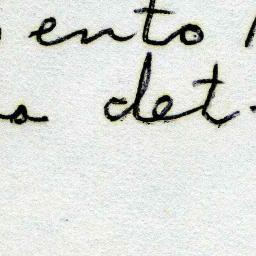 ento
a det